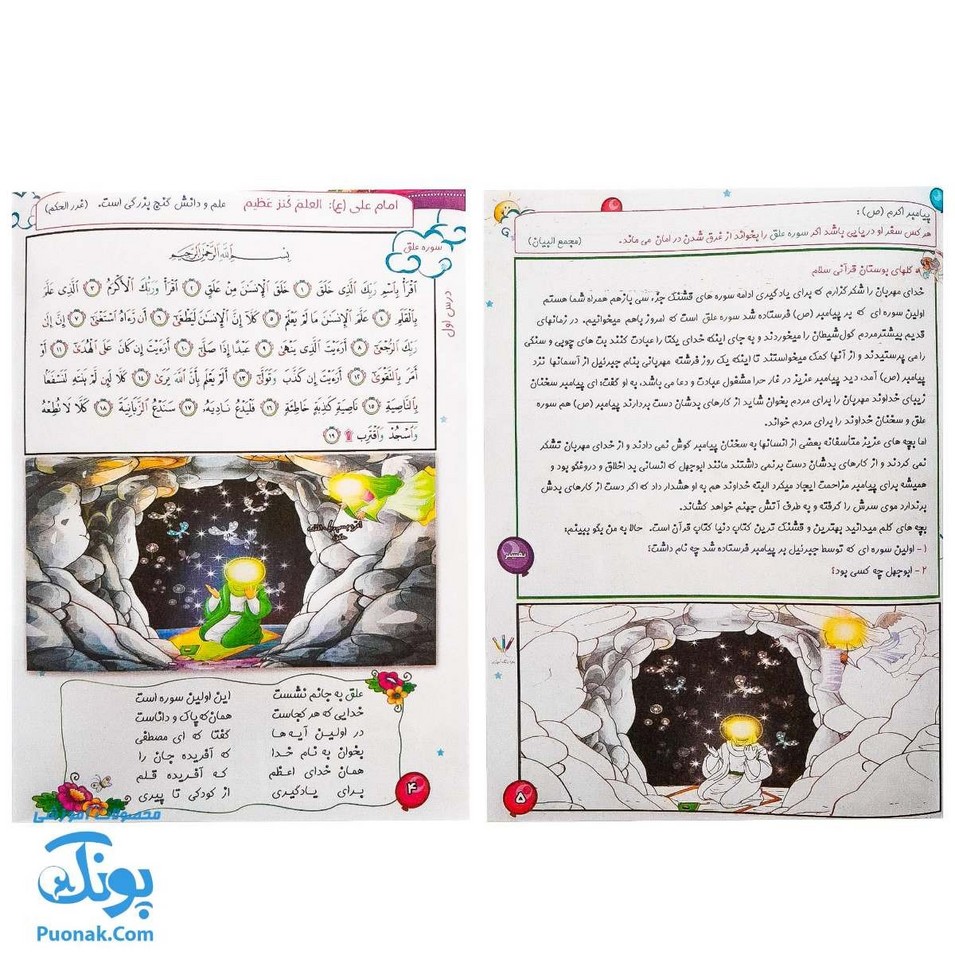 امام علی (ع): العلمُ کَنزٌ عَظیم علم و دانش گنج بزرگی است. (غرر الحکم)
سوره علق
درس اول
بِسْمِ اللَّهِ الرَّحْمَٰنِ الرَّحِيمِ
اقْرَأْ بِاسْمِ رَبِّكَ الَّذِي خَلَقَ ﴿۱﴾ خَلَقَ الْإِنسَٰنَ مِنْ عَلَقٍ ﴿۲﴾ اقْرَأْ وَرَبُّكَ الْأَكْرَمُ ﴿۳﴾ الَّذِي عَلَّمَ
بِالْقَلَمِ ﴿۴﴾ عَلَّمَ الْإِنسَٰنَ مَا لَمْ يَعْلَمْ ﴿۵﴾ كَلَّا إِنَّ الْإِنسَٰنَ لَيَطْغَىٰ ﴿۶﴾ أَن رَّءَاهُ اسْتَغْنَىٰ ﴿۷﴾ إِنَّ إِلَىٰ
رَبِّكَ الرُّجْعَىٰ ﴿۸﴾ أَرَءَيْتَ الَّذِي يَنْهَىٰ ﴿۹﴾ عَبْدًا إِذَا صَلَّىٰ ﴿۱۰﴾ أَرَءَيْتَ إِن كَانَ عَلَى الْهُدَىٰ ﴿۱۱﴾ أَوْ
أَمَرَ بِالتَّقْوَىٰ ﴿۱۲﴾ أَرَءَيْتَ إِن كَذَّبَ وَتَوَلَّىٰ ﴿۱۳﴾ أَلَمْ يَعْلَم بِأَنَّ اللَّهَ يَرَىٰ ﴿۱۴﴾ كَلَّا لَئِن لَّمْ يَنتَهِ لَنَسْفَعًا
بِالنَّاصِيَةِ ﴿۱۵﴾ نَاصِيَةٍ كَٰذِبَةٍ خَاطِئَةٍ ﴿۱۶﴾ فَلْيَدْعُ نَادِيَهُ، ﴿۱۷﴾ سَنَدْعُ الزَّبَانِيَةَ ﴿۱۸﴾ كَلَّا لَا تُطِعْهُ
وَاسْجُدْ وَاقْتَرِب ۩ ﴿۱۹﴾
علق به جانم نشست این اولین سوره است
خدایی که هر کجاست همان که پاک و داناست
در اولین آیه ها گفتا که ای مصطفی
بخوان به نام خدا که آفریده جان را
همان خدای اعظم که آفریده قلم
برای یادگیری از کودکی تا پیری
۴
پیامبر اکرم (ص):
هر کس سفر او دریایی باشد اگر سوره علق را بخواند از غرق شدن در امان می ماند. (مجمع البیان)
گلهای بوستان قرآنی سلام
خدای مهربان را شکرگزارم که برای یادگیری ادامه سوره های قشنگ جزء سی بازهم همراه شما هستم
اولین سوره ای که بر پیامبر (ص) فرستاده شد سوره علق است که امروز باهم میخوانیم. در زمانهای
قدیم بیشترمردم گول شیطان را میخوردند و به جای اینکه خدای یکتا را عبادت کنند بت های چوبی و سنگی
را می پرستیدند و از آنها کمک میخواستند تا اینکه یک روز فرشته مهربانی بنام جبرئیل از آسمانها نزد
پیامبر (ص) آمد، دید پیامبر عزیز در غار حرا مشغول عبادت و دعا می باشد، به او گفت: ای پیامبر سخنان
زیبای خداوند مهربان را برای مردم بخوان شاید از کارهای بدشان دست بردارند پیامبر (ص) هم سوره
علق و سخنان خداوند را برای مردم خواند.
اما بچه های عزیز متأسفانه بعضی از انسانها به سخنان پیامبر گوش نمی دادند و از خدای مهربان تشکر
نمی کردند و از کارهای بدشان دست برنمی داشتند مانند ابوجهل که انسانی بد اخلاق و دروغگو بود و
همیشه برای پیامبر مزاحمت ایجاد میکرد البته خداوند هم به او هشدار داد که اگر دست از کارهای بدش
برندارد موی سرش را گرفته و به طرف آتش جهنم خواهد کشاند.
بچه های گلم میدانید بهترین و قشنگ ترین کتاب دنیا کتاب قرآن است. حالا به من بگو ببینم:
۱- اولین سوره ای که توسط جبرئیل بر پیامبر فرستاده شد چه نام داشت؟
۲- ابوجهل چه کسی بود؟
۵
محصولات آموزشی
پونک
Puonak.Com